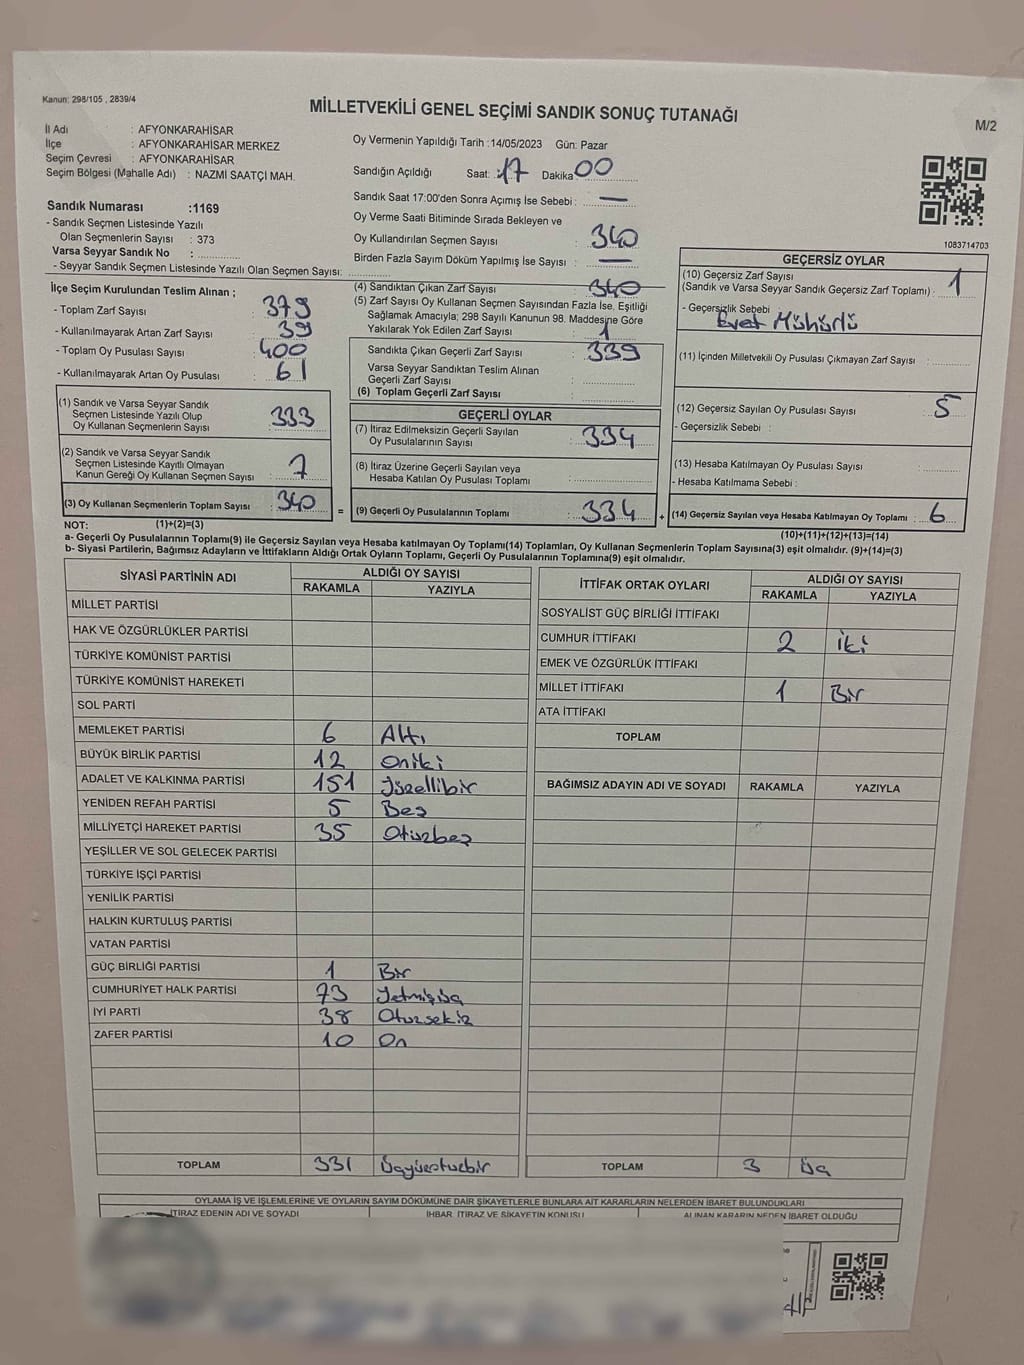 Kanun: 298/105 , 2839/4
MİLLETVEKİLİ GENEL SEÇİMİ SANDIK SONUÇ TUTANAĞI
M/2
İl Adı : AFYONKARAHİSAR
İlçe : AFYONKARAHİSAR MERKEZ
Seçim Çevresi : AFYONKARAHİSAR
Seçim Bölgesi (Mahalle Adı) : NAZMİ SAATÇİ MAH.
Sandık Numarası :1169
- Sandık Seçmen Listesinde Yazılı
Olan Seçmenlerin Sayısı : 373
Varsa Seyyar Sandık No :
- Seyyar Sandık Seçmen Listesinde Yazılı Olan Seçmen Sayısı:
İlçe Seçim Kurulundan Teslim Alınan ;
- Toplam Zarf Sayısı : 379
- Kullanılmayarak Artan Zarf Sayısı : 39
- Toplam Oy Pusulası Sayısı : 400
- Kullanılmayarak Artan Oy Pusulası : 61
(1) Sandık ve Varsa Seyyar Sandık
Seçmen Listesinde Yazılı Olup
Oy Kullanan Seçmenlerin Sayısı : 333
(2) Sandık ve Varsa Seyyar Sandık
Seçmen Listesinde Kayıtlı Olmayan
Kanun Gereği Oy Kullanan Seçmen Sayısı : 7
(3) Oy Kullanan Seçmenlerin Toplam Sayısı : 340
Oy Vermenin Yapıldığı Tarih :14/05/2023 Gün: Pazar
Sandığın Açıldığı Saat: 17 Dakika 00
Sandık Saat 17:00'den Sonra Açımış İse Sebebi : —
Oy Verme Saati Bitiminde Sırada Bekleyen ve
Oy Kullandırılan Seçmen Sayısı : 340
Birden Fazla Sayım Döküm Yapılmış İse Sayısı : —
(4) Sandıktan Çıkan Zarf Sayısı : 340
(5) Zarf Sayısı Oy Kullanan Seçmen Sayısından Fazla İse, Eşitliği
Sağlamak Amacıyla; 298 Sayılı Kanunun 98. Maddesine Göre
Yakılarak Yok Edilen Zarf Sayısı : 1
Sandıkta Çıkan Geçerli Zarf Sayısı : 339
Varsa Seyyar Sandıktan Teslim Alınan
Geçerli Zarf Sayısı :
(6) Toplam Geçerli Zarf Sayısı :
GEÇERLİ OYLAR
(7) İtiraz Edilmeksizin Geçerli Sayılan
Oy Pusulalarının Sayısı : 334
(8) İtiraz Üzerine Geçerli Sayılan veya
Hesaba Katılan Oy Pusulası Toplamı :
= (9) Geçerli Oy Pusulalarının Toplamı : 334 +
1083714703
GEÇERSİZ OYLAR
(10) Geçersiz Zarf Sayısı
(Sandık ve Varsa Seyyar Sandık Geçersiz Zarf Toplamı) : 1
- Geçersizlik Sebebi :
Evet Mühürlü
(11) İçinden Milletvekili Oy Pusulası Çıkmayan Zarf Sayısı :
(12) Geçersiz Sayılan Oy Pusulası Sayısı : 5
- Geçersizlik Sebebi :
(13) Hesaba Katılmayan Oy Pusulası Sayısı :
- Hesaba Katılmama Sebebi :
(14) Geçersiz Sayılan veya Hesaba Katılmayan Oy Toplamı : 6
NOT: (1)+(2)=(3)
(10)+(11)+(12)+(13)=(14)
a- Geçerli Oy Pusulalarının Toplamı(9) ile Geçersiz Sayılan veya Hesaba katılmayan Oy Toplamı(14) Toplamları, Oy Kullanan Seçmenlerin Toplam Sayısına(3) eşit olmalıdır. (9)+(14)=(3)
b- Siyasi Partilerin, Bağımsız Adayların ve İttifakların Aldığı Ortak Oyların Toplamı, Geçerli Oy Pusulalarının Toplamına(9) eşit olmalıdır.
SİYASİ PARTİNİN ADI ALDIĞI OY SAYISI
RAKAMLA YAZIYLA
MİLLET PARTİSİ
HAK VE ÖZGÜRLÜKLER PARTİSİ
TÜRKİYE KOMÜNİST PARTİSİ
TÜRKİYE KOMÜNİST HAREKETİ
SOL PARTİ
MEMLEKET PARTİSİ 6 Altı
BÜYÜK BİRLİK PARTİSİ 12 Oniki
ADALET VE KALKINMA PARTİSİ 151 Yüzellibir
YENİDEN REFAH PARTİSİ 5 Beş
MİLLİYETÇİ HAREKET PARTİSİ 35 Otuzbeş
YEŞİLLER VE SOL GELECEK PARTİSİ
TÜRKİYE İŞÇİ PARTİSİ
YENİLİK PARTİSİ
HALKIN KURTULUŞ PARTİSİ
VATAN PARTİSİ
GÜÇ BİRLİĞİ PARTİSİ 1 Bir
CUMHURİYET HALK PARTİSİ 73 Yetmişüç
İYİ PARTİ 38 Otuzsekiz
ZAFER PARTİSİ 10 On
TOPLAM 331 Üçyüzotuzbir
İTTİFAK ORTAK OYLARI ALDIĞI OY SAYISI
RAKAMLA YAZIYLA
SOSYALİST GÜÇ BİRLİĞİ İTTİFAKI
CUMHUR İTTİFAKI 2 İki
EMEK VE ÖZGÜRLÜK İTTİFAKI
MİLLET İTTİFAKI 1 Bir
ATA İTTİFAKI
TOPLAM
BAĞIMSIZ ADAYIN ADI VE SOYADI RAKAMLA YAZIYLA
TOPLAM 3 Üç
OYLAMA İŞ VE İŞLEMLERİNE VE OYLARIN SAYIM DÖKÜMÜNE DAİR ŞİKAYETLERLE BUNLARA AİT KARARLARIN NELERDEN İBARET BULUNDUKLARI
İTİRAZ EDENİN ADI VE SOYADI İHBAR, İTİRAZ VE ŞİKAYETİN KONUSU ALINAN KARARIN NEDEN İBARET OLDUĞU